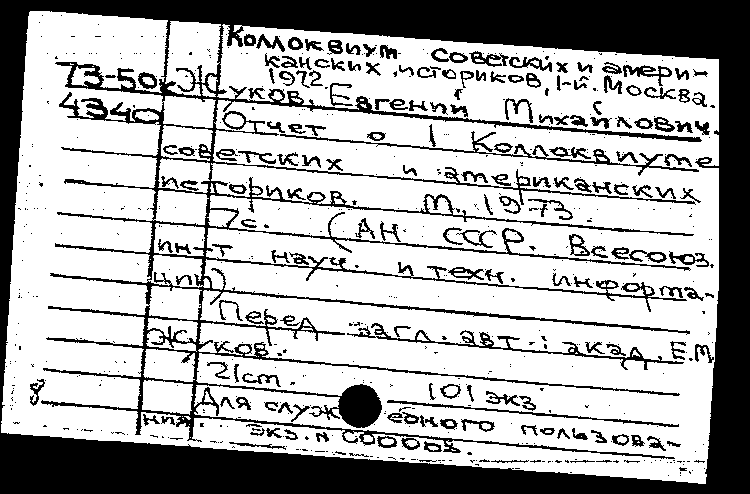 Коллоквиум советских и амери-
канских историков, 1-й. Москва.
1972.
73-50к Жуков, Евгений Михайлович.
4340 Отчет о I Коллоквиуме
советских и американских
историков. М., 1973.
7с. (АН СССР. Всесоюз.
ин-т науч. и техн. информа-
ции).
Перед загл. авт.: акад. Е.М.
Жуков.
21 cm. 101 экз.
8 Для служебного пользова-
ния. Экз. N 000008.